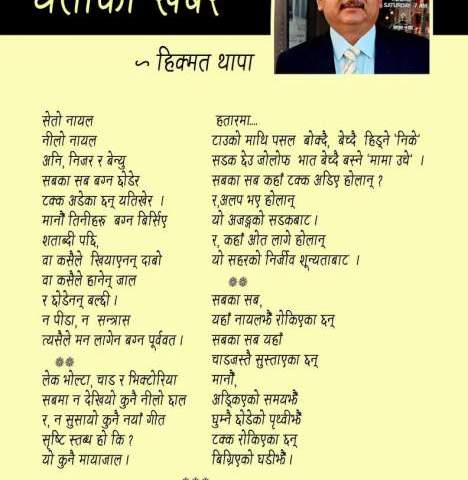 ~ हिक्मत थापा
SATURDAY 7 AM
सेतो नायल
नीलो नायल
अनि, निजर र बेन्यु
सबका सब बग्न छोडेर
टक्क अडेका छन् यतिखेर ।
मानौं तिनीहरु बग्न बिर्सिए
शताब्दी पछि,
वा कसैले खियाएनन् दाबो
वा कसैले हानेनन् जाल
र छोडेनन् बल्छी ।
न पीडा, न सन्त्रास
त्यसैले मन लागेन बग्न पूर्ववत ।
लेक भोल्टा, चाड र भिक्टोरिया
सबमा न देखियो कुनै नीलो छाल
र, न सुसायो कुनै नयाँ गीत
सृष्टि स्तब्ध हो कि ?
यो कुनै मायाजाल ।
हतारमा....
टाउको माथि पसल बोक्दै, बेच्दै हिड्ने 'निके'
सडक छेउ जोलोफ भात बेच्दै बस्ने 'मामा उचे' ।
सबका सब कहाँ टक्क अडिए होलान् ?
र,अलप भए होलान्
यो अजङ्गको सडकबाट ।
र, कहाँ ओत लागे होलान्
यो सहरको निर्जीव शून्यताबाट ।
सबका सब,
यहाँ नायलझैं रोकिएका छन्
सबका सब यहाँ
चाडजस्तै सुस्ताएका छन्
मानौं,
अड्किएको समयझैं
घुम्नै छोडेको पृथ्वीझैं
टक्क रोकिएका छन्
बिग्रिएको घडीझैं ।